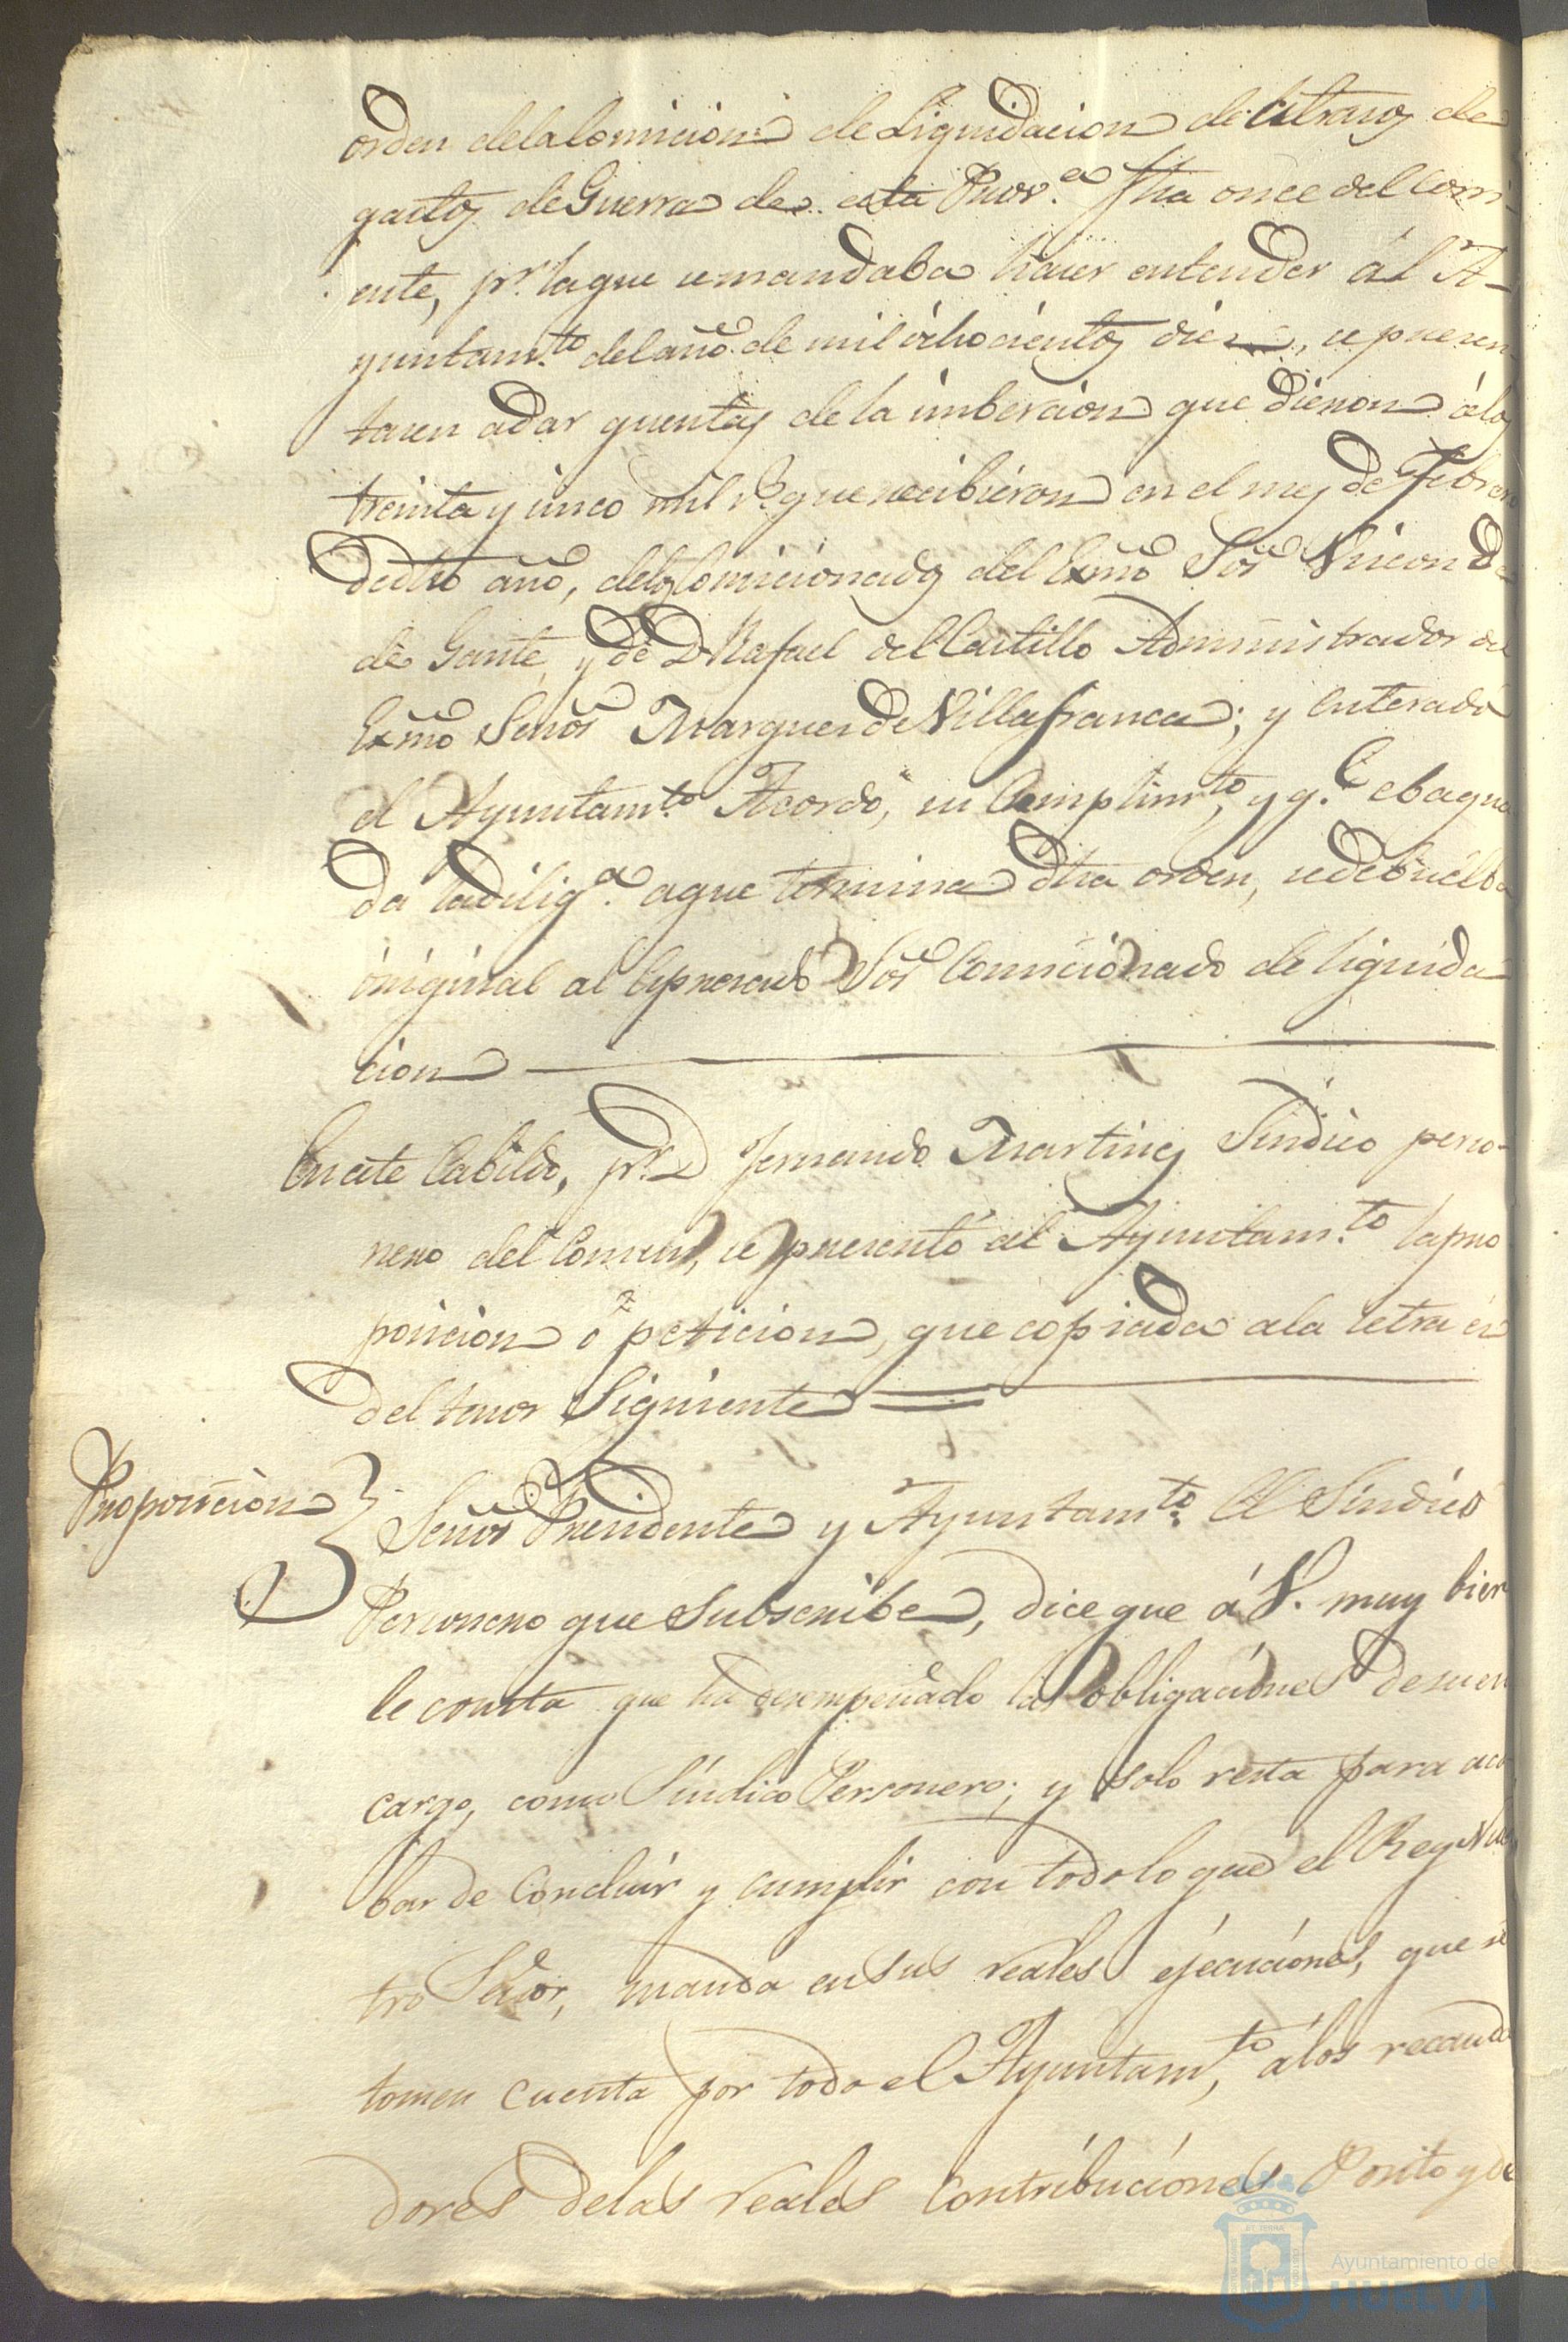 orden dela Comicion de Liquidacion de atrasos de
gastos de Guerra de esta Prov.ª fha once del Corri-
ente, pr. la que se mandaba hacer entender ál A-
yuntam.to del año de mil ochocientos diez, se presen
tasen adar quentas de la imbercion que dieron álos
treinta y cinco mil rs. que recibieron en el mes de Febrero
de dho año, delos Comicionados del Exmo Sor. Vizconde
de Gante, y de Dn Rafael del Castillo Administrador del
Exmo Señor Marques de Villafranca; y enterado
el Ayuntam.to Acordó, su Cumplim.to, y q.e ebaqua
da la dilig.ª aque termina dha orden, se debuelba
original al Expresado Sor Comicionado de liquida
cion
En este Cabildo, pr. Dn Fernando Martinez Sindico perso-
nero del Comun, se presentó al Ayuntam.to la pro
posicion ó peticion, que copiada ala letra es
del tenor Siguiente
Proposicion
Señor Presidente y Ayuntam.to El Sindico
Personero que Subscribe, dice que á V. muy bien
le consta que ha desempeñado las obligaciones de su en
cargo, como Sindico Personero; y solo resta para aca
bar de Concluir y cumplir con todo lo que el Rey Nues
tro Señor, manda en sus reales ejecuciones, que se
tomen cuenta por todo el Ayuntam.to, álos recauda
dores delas reales Contribuciones Posito y de
Ayuntamiento de
HUELVA